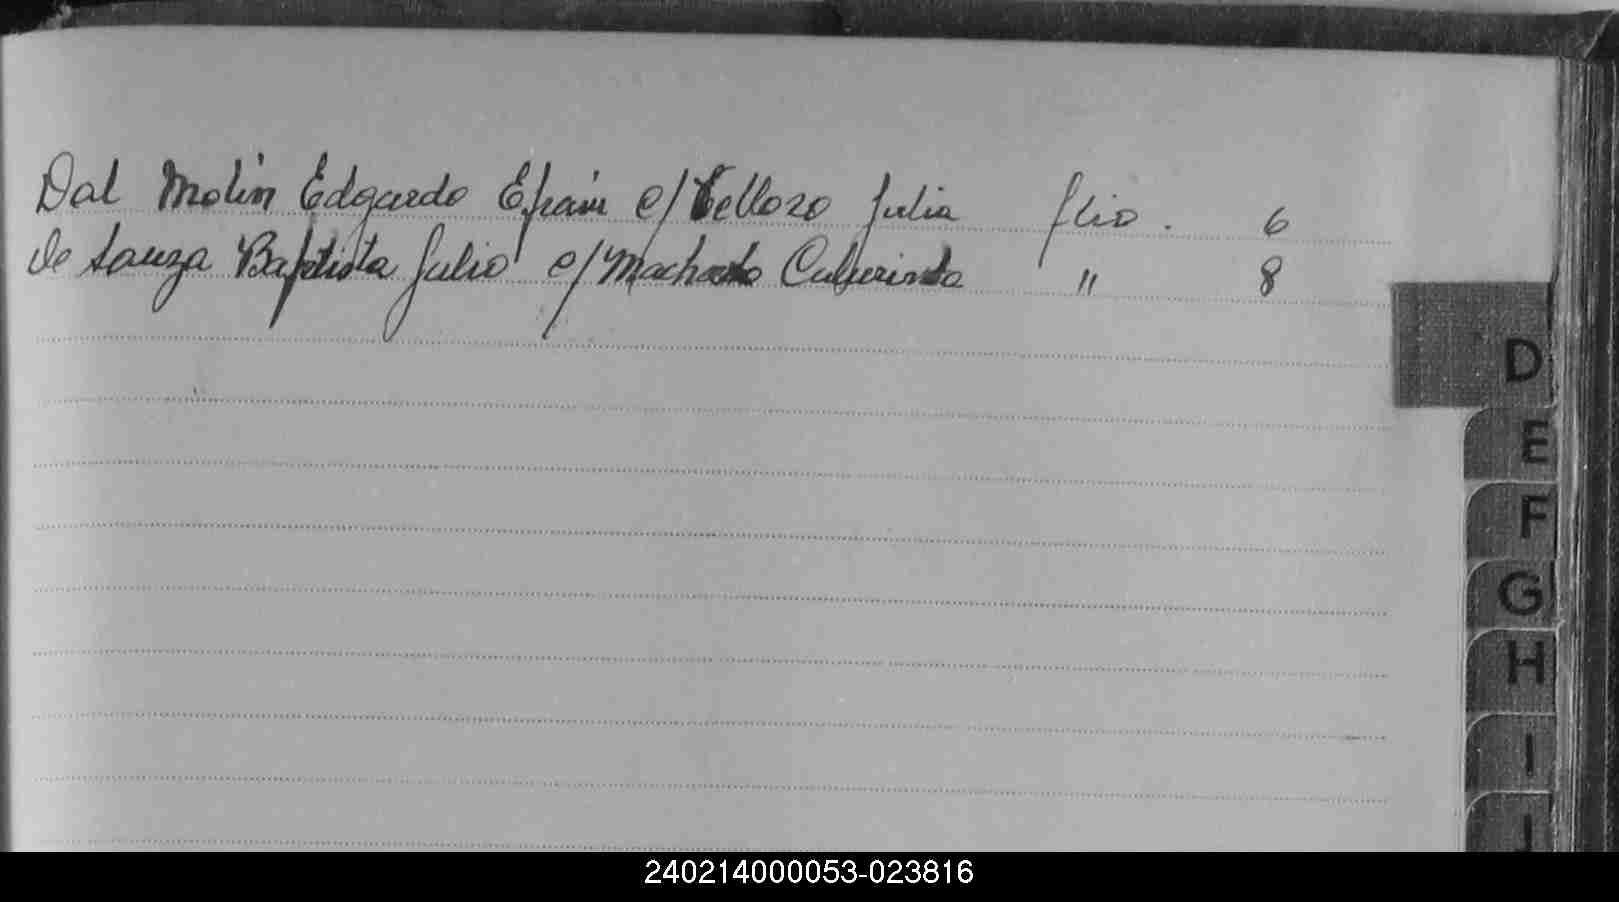 Dal Molin Edgardo Efraín c/ Vellozo Julia flio. 6
de Souza Baptista Julio c/ Machado " 8
D
E
F
G
H
I
J
240214000053-023816